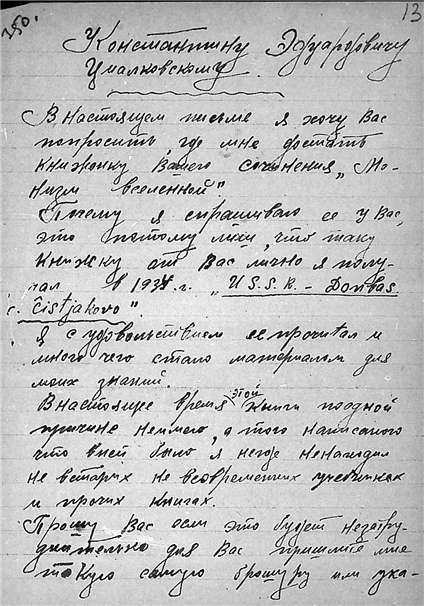 350.
13
Константину Эдуардовичу
Циалковскому
В настоящем письме я хочу Вас
попросить, где мне достать
книжонку Вашего сочинения „Мо-
низм вселенной"
Почему я спрашиваю ее у Вас,
это потому что, таку
книжку от Вас лично я полу-
чал в 1931 г. „U.S.S.R. - Donbas
c. Čistjakovo".
Я с удовольствием ее прочитал и
много чего стало материалом для
моих знаний.
В настоящее время этой книги по одной
причине не имею, а того написаного
что в ней было я негде не находил
не встарих не всовременних учебниках
и прочих книгах.
Прошу Вас если это будет незатру-
днительно для Вас пришлите мне
такую самую брошуру или ука-